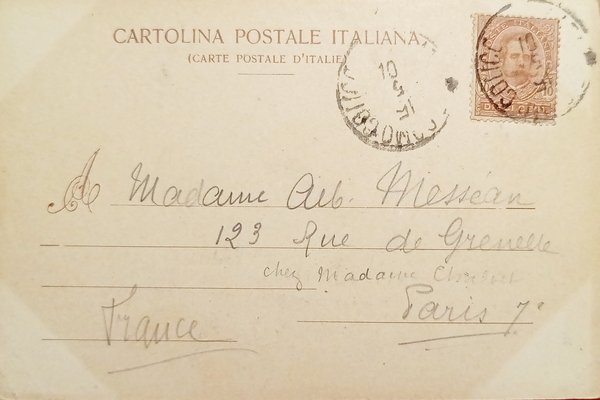 CARTOLINA POSTALE ITALIANA
(CARTE POSTALE D'ITALIE)
COLICO
A Madame Alb. Messéan
123 Rue de Grenelle
chez Madame
Paris 7e
France